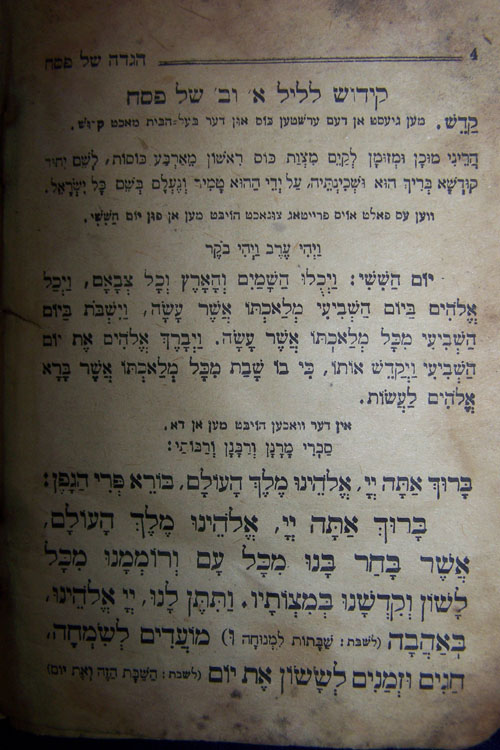 4
הגדה של פסח
קידוש לליל א׳ וב׳ של פסח
קַדֵּשׁ. מען גיעסט אן דעם ערשטען כוס און דער בעל־הבית מאכט קידוש.
הֲרֵינִי מוּכָן וּמְזוּמָן לְקַיֵּם מִצְוַת כּוֹס רִאשׁוֹן מֵאַרְבַּע כּוֹסוֹת, לְשֵׁם יִחוּד
קוּדְשָׁא בְּרִיךְ הוּא וּשְׁכִינְתֵּיהּ, עַל יְדֵי הַהוּא טָמִיר וְנֶעְלָם בְּשֵׁם כָּל יִשְׂרָאֵל.
ווען עס פאלט אויס פרייטאג צונאכט הויבט מען אן פון יום הששי.
וַיְהִי עֶרֶב וַיְהִי בֹקֶר
יוֹם הַשִּׁשִּׁי: וַיְכֻלּוּ הַשָּׁמַיִם וְהָאָרֶץ וְכָל צְבָאָם, וַיְכַל
אֱלֹהִים בַּיּוֹם הַשְּׁבִיעִי מְלַאכְתּוֹ אֲשֶׁר עָשָׂה, וַיִּשְׁבֹּת בַּיּוֹם
הַשְּׁבִיעִי מִכָּל מְלַאכְתּוֹ אֲשֶׁר עָשָׂה. וַיְבָרֶךְ אֱלֹהִים אֶת יוֹם
הַשְּׁבִיעִי וַיְקַדֵּשׁ אוֹתוֹ, כִּי בוֹ שָׁבַת מִכָּל מְלַאכְתּוֹ אֲשֶׁר בָּרָא
אֱלֹהִים לַעֲשׂוֹת.
אין דער וואכען הויבט מען אן דא.
סַבְרִי מָרָנָן וְרַבָּנָן וְרַבּוֹתַי:
בָּרוּךְ אַתָּה יְיָ, אֱלֹהֵינוּ מֶלֶךְ הָעוֹלָם, בּוֹרֵא פְּרִי הַגָּפֶן:
בָּרוּךְ אַתָּה יְיָ, אֱלֹהֵינוּ מֶלֶךְ הָעוֹלָם,
אֲשֶׁר בָּחַר בָּנוּ מִכָּל עָם וְרוֹמְמָנוּ מִכָּל
לָשׁוֹן וְקִדְּשָׁנוּ בְּמִצְוֹתָיו. וַתִּתֶּן לָנוּ, יְיָ אֱלֹהֵינוּ,
בְּאַהֲבָה (לשבת: שַׁבָּתוֹת לִמְנוּחָה וּ) מוֹעֲדִים לְשִׂמְחָה,
חַגִּים וּזְמַנִּים לְשָׂשׂוֹן אֶת יוֹם (לשבת: הַשַּׁבָּת הַזֶּה וְאֶת יוֹם)